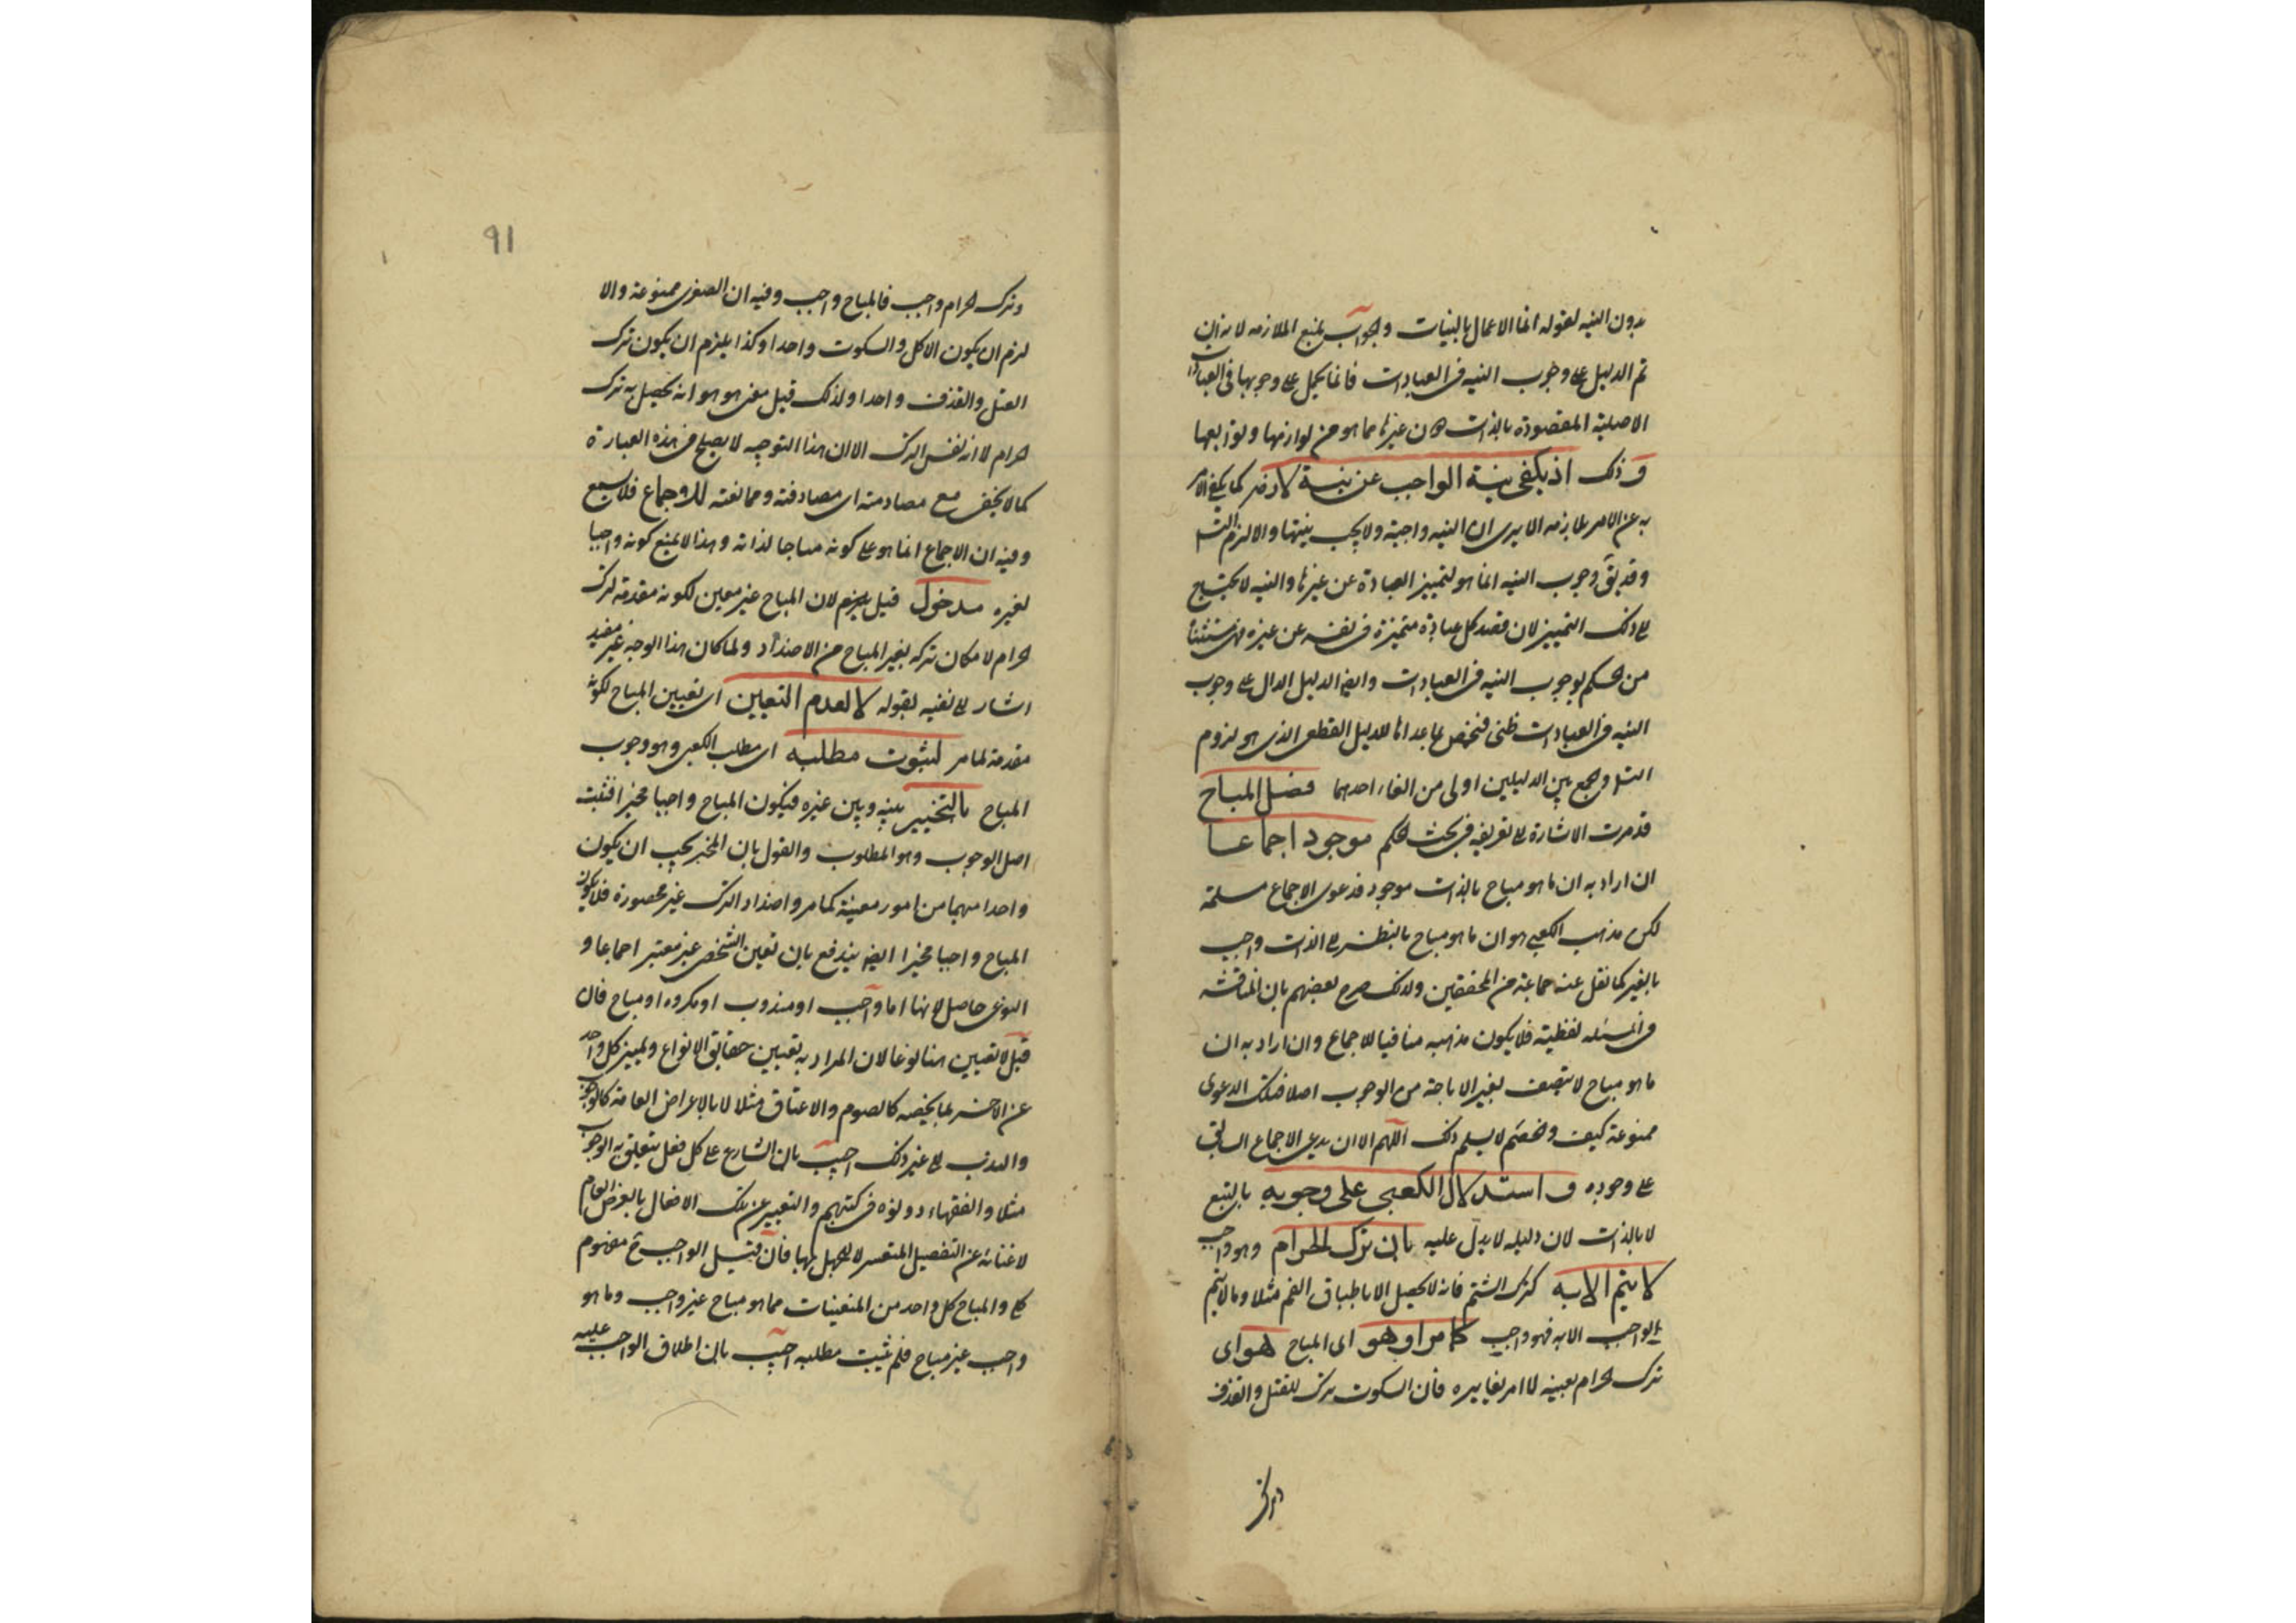 بدون النيه لقوله انما الاعمال بالنيات والجواب بمنع الملازمه لانه ان
تم الدليل على وجوب النيه فى العبادات فانما يحمل على وجوبها فى العبادات
الاصلية المقصودة بالذات دون غيرها مما هو من لوازمها وتوابعها
وذلك اذ يكفى نية الواجب عن نية لازمه كما يكفى الامر
به عن الامر بلازمه الا يرى ان النيه واجبة ولا يجب نيتها والا لزم التسلسل
وقد يق وجوب النيه انما هو لتمييز العبادة عن غيرها والنيه لا تحتاج
الى ذلك التمييز لان قصد كل عبادة متميزة فى نفسه عن غيره فهى مستثناة
من الحكم بوجوب النيه فى العبادات وايضا الدليل الدال على وجوب
النيه فى العبادات ظنى فتخص بما عداها للدليل القطعى الذى هو لزوم
التسل والجمع بين الدليلين اولى من الغاء احدهما فصل المباح
قد مرت الاشارة الى تعريفه فى بحث الحكم موجود اجماعا
ان اراد به ان ما هو مباح بالذات موجود فدعوى الاجماع مسلمة
لكن مذهب الكعبى هو ان ما هو مباح بالنظر الى الذات واجب
بالغير كما نقل عنه جماعة من المحققين ولذلك صرح بعضهم بان المناقشه
فى المسئله لفظية فلا يكون مذهبه منافيا للاجماع وان اراد به ان
ما هو مباح لا يتصف بغير الاباحة من الوجوب اصلا فتلك الدعوى
ممنوعة كيف والخصم لا يسلم ذلك اللهم الا ان يدعى الاجماع السابق
على وجوده و استدلال الكعبى على وجوبه بالتبع
لا بالذات لان دليله لا يدل عليه بان ترك الحرام وهو واجب
لا يتم الا به كترك الشتم فانه لا يحصل الا باطباق الفم مثلا وما لا يتم
الواجب الا به فهو واجب كما مر او هو اى المباح هو اى
ترك الحرام بعينه لا امر يغايره فان السكوت ترك للقتل والقذف
وترك
٩١
وترك الحرام واجب فالمباح واجب وفيه ان الصغرى ممنوعة والا
لزم ان يكون الاكل والسكوت واحدا وكذا يلزم ان يكون ترك
القتل والقذف واحدا ولذلك قيل معنى هو هو انه يحصل به ترك
الحرام لا انه نفس الترك الا ان هذا التوجيه لا يصلح فى هذه العبارة
كما لا يخفى مع مصادمته اى مصادفته وممانعته للاجماع فلا يسمع
وفيه ان الاجماع انما هو على كونه مباحا لذاته وهذا لا يمنع كونه واجبا
لغيره مدخول قيل لان المباح غير معين لكونه مقدمة لترك
الحرام لا مكان تركه بغير المباح من الاضداد ولما كان هذا الوجه غير مفيد
اشار الى نفيه بقوله لا لعدم التعيين اى تعيين المباح لكونه
مقدمة لما مر لثبوت مطلبه اى مطلب الكعبى وهو وجوب
المباح بالتخيير بينه وبين غيره فيكون المباح واجبا مخيرا فثبت
اصل الوجوب وهو المطلوب والقول بان المخير يجب ان يكون
واحدا مبهما من امور معينة كما مر واضداد الترك غير محصورة فلا يكون
المباح واجبا مخيرا ايضا يندفع بان تعين الشخص غير معتبر اجماعا و
النوعى حاصل لانها اما واجب او مندوب او مكروه او مباح فان
قيل لا تعيين هنا نوعا لان المراد به تعيين حقايق الانواع وتمييز كل واحد
عن الاخر بما يخصه كالصوم والاعتاق مثلا لا بالاعراض العامة كالوجوب
والندب الى غير ذلك اجيب بان الشارع على كل فعل يتعلق به الوجوب
مثلا والفقهاء دونوه فى كتبهم والتعبير عن تلك الافعال بالعرض العام
لاغنائه عن التفصيل المتعسر لا للجهل بها فان قيل الواجب ح مفهوم
كلى والمباح كل واحد من المتعينات مما هو مباح غير واجب وما هو
واجب غير مباح فلم يثبت مطلبه اجيب بان اطلاق الواجب عليه